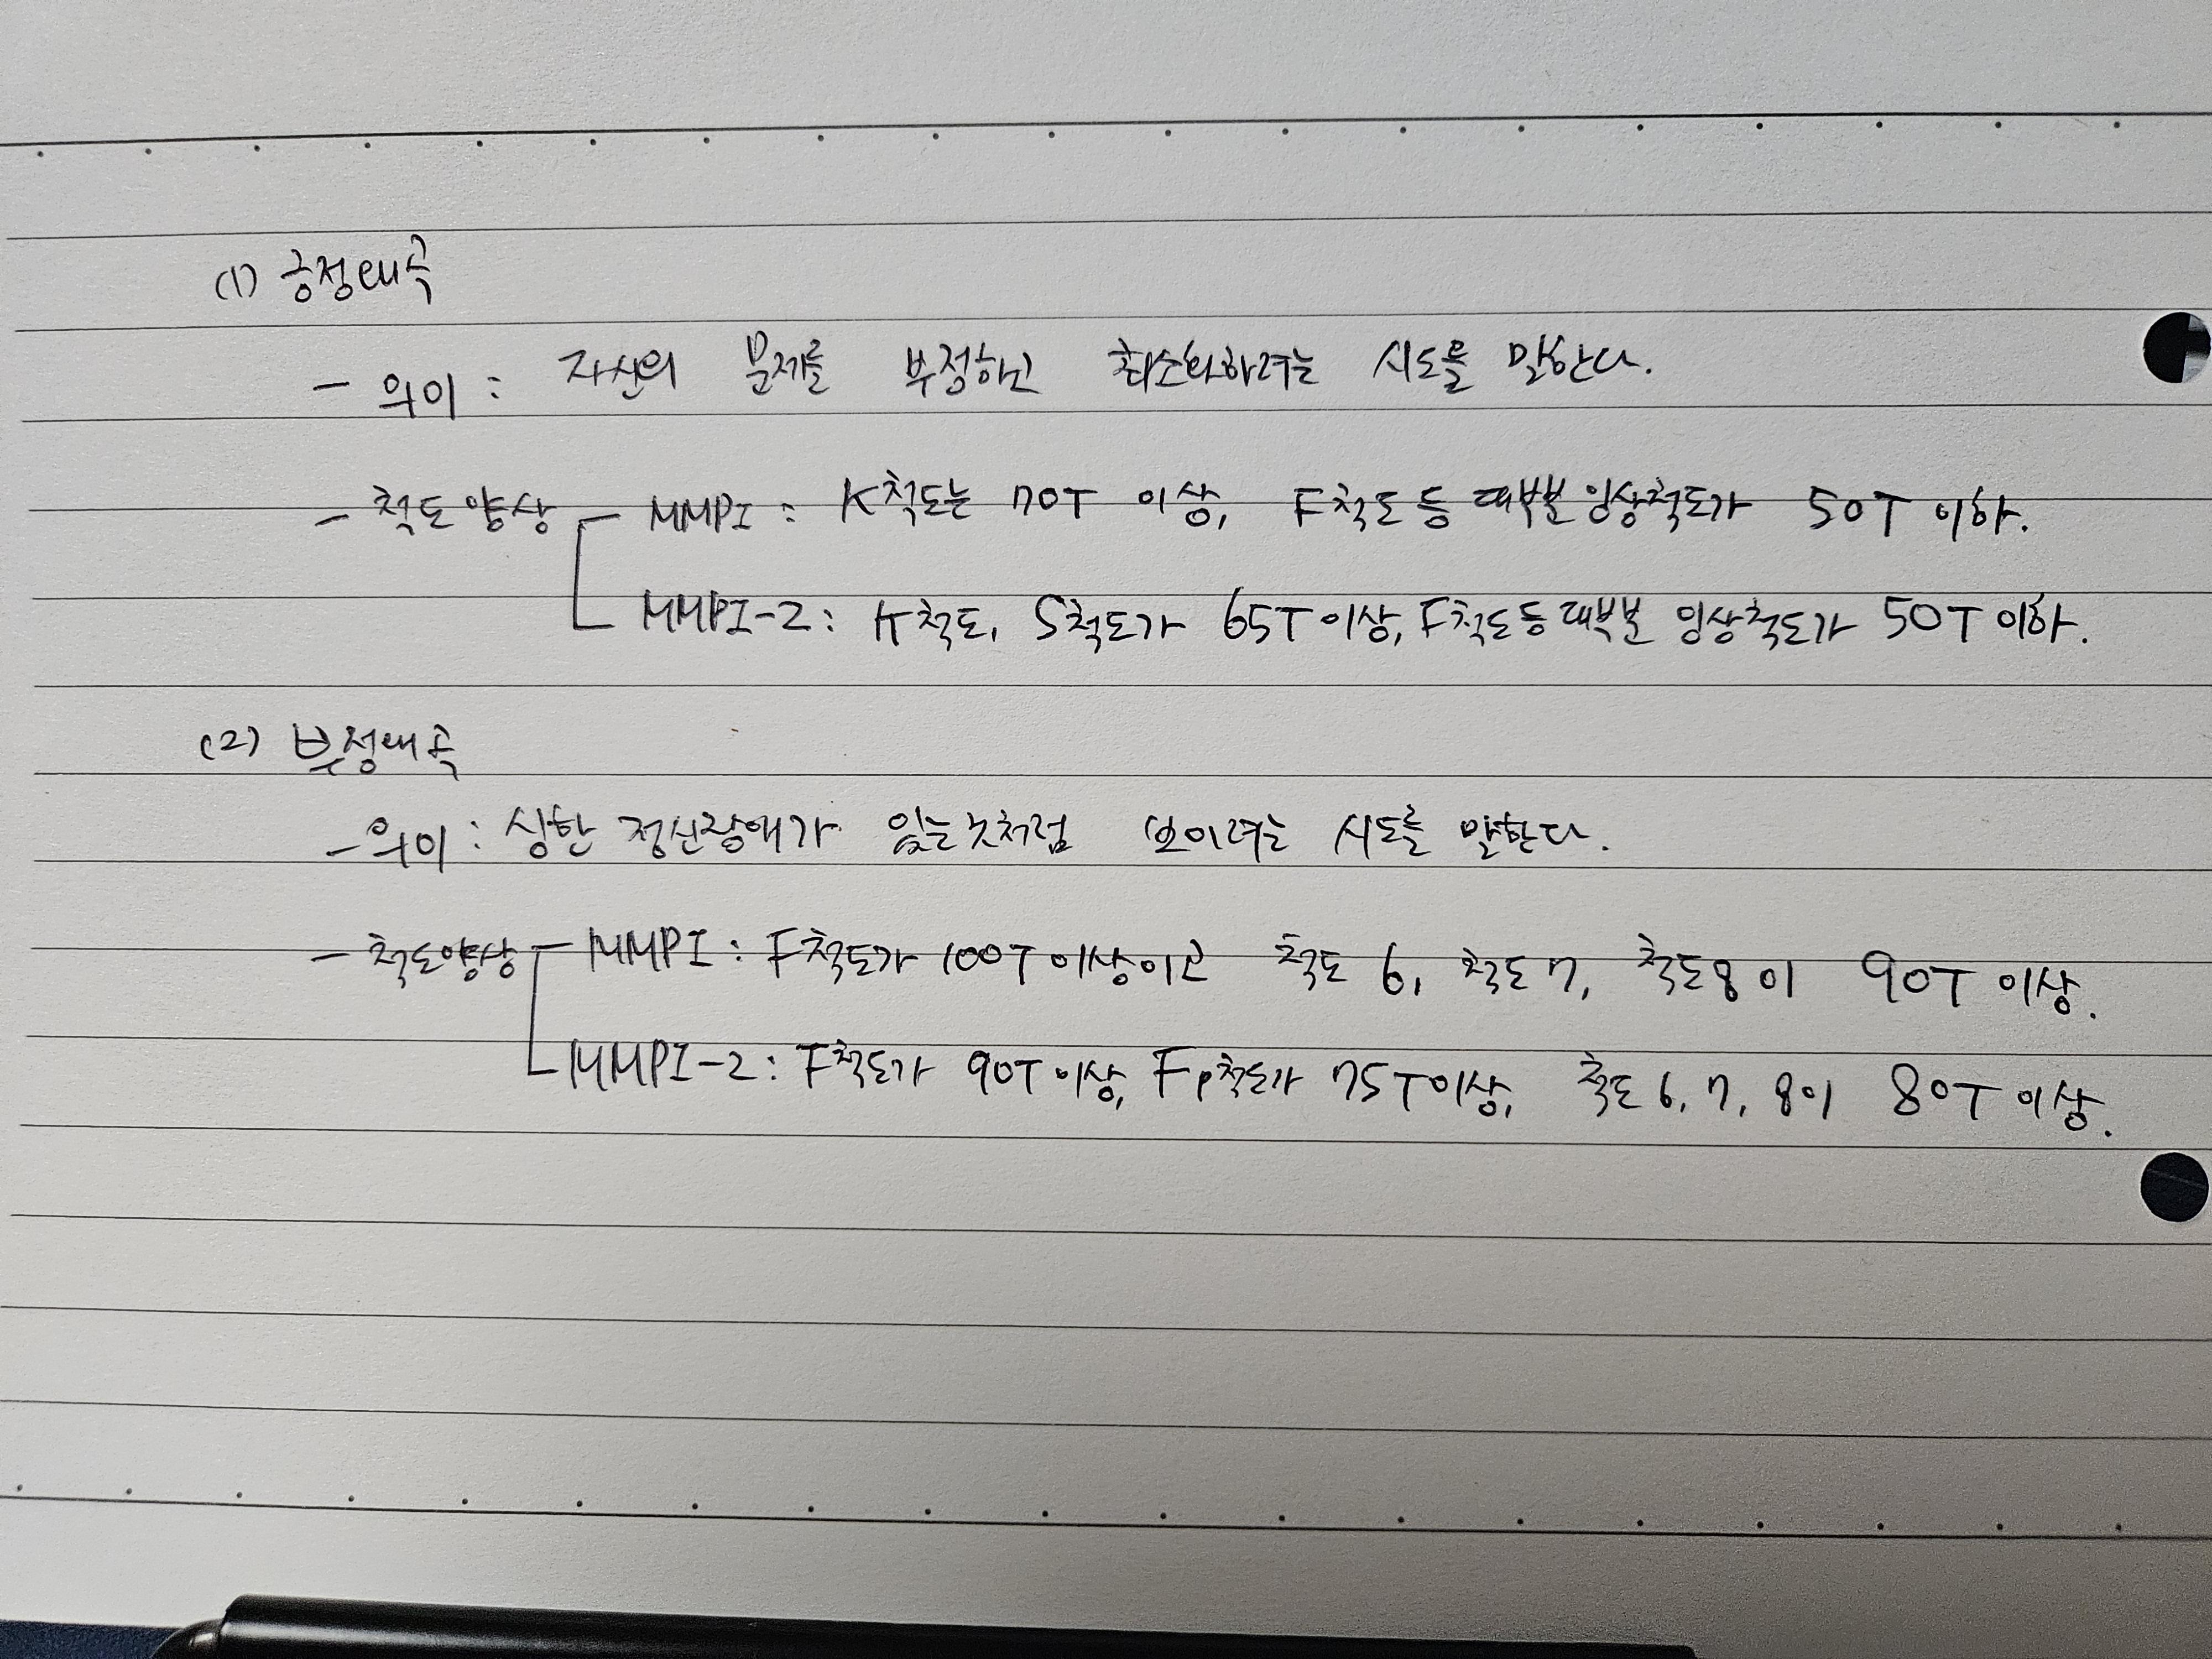 (1) 긍정왜곡
- 의미 : 자신의 문제를 부정하고 최소화하려는 시도를 말한다.
- 척도 양상 - MMPI : K척도는 70T 이상, F척도 등 대부분 임상척도가 50T 이하.
MMPI-2 : K척도, S척도가 65T 이상, F척도 등 대부분 임상척도가 50T 이하.
(2) 부정왜곡
- 의미 : 심한 정신장애가 있는 것처럼 보이려는 시도를 말한다.
- 척도양상 - MMPI : F척도가 100T 이상이고 척도 6, 척도 7, 척도 8이 90T 이상.
MMPI-2 : F척도가 90T 이상, Fp척도가 75T 이상, 척도 6, 7, 8이 80T 이상.